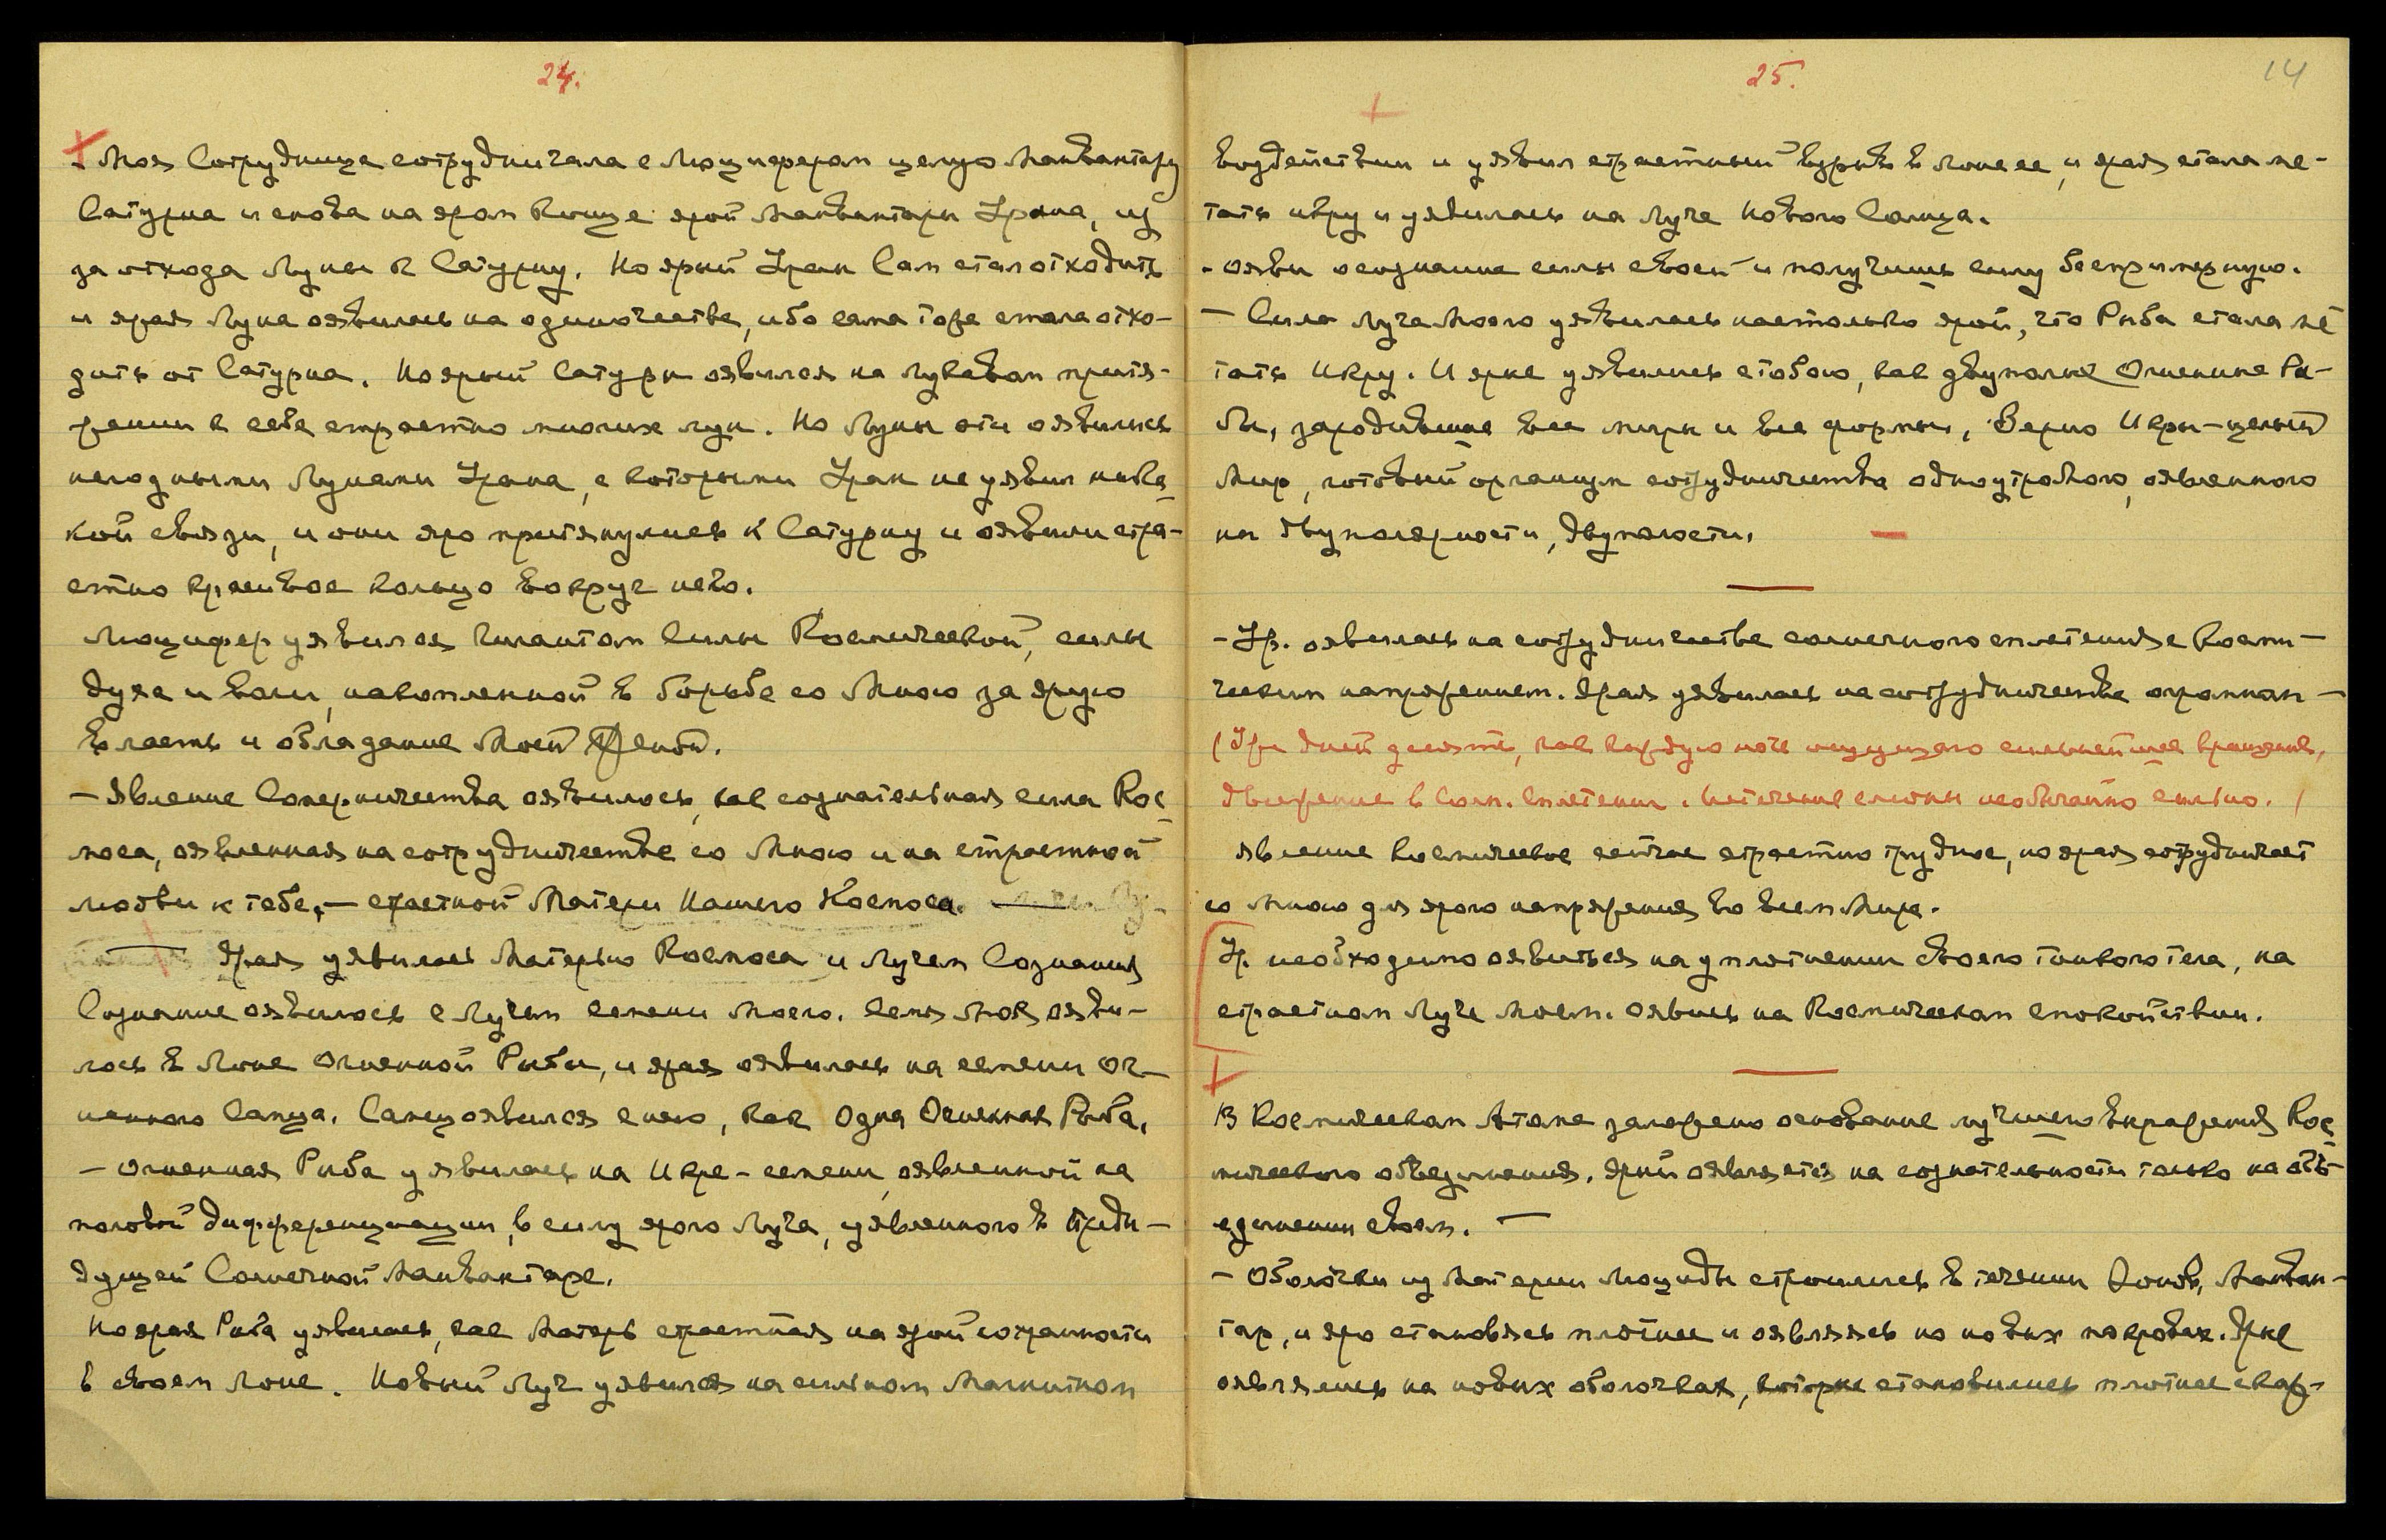 24.
- Моя Сотрудница сотрудничала с Люцифером целую Манвантару
Сатурна и снова на яром Конце ярой Манвантары Урана, из
за отхода Луны к Сатурну. Но ярый Уран Сам стал отходить
и ярая Луна оявилась на одиночестве, ибо сама тоже стала отхо-
дить от Сатурна. Но ярый Сатурн оявился на лукавом притя-
жении к себе страстно многих лун. Но Луны эти оявились
негодными Лунами Урана, с которыми Уран не уявил ника-
кой связи, и они яро притянулись к Сатурну и оявили стра-
стно красивое кольцо вокруг него.
Люцифер уявился Гигантом Силы Космической, силы
духа и воли, накопленной в борьбе со Мною за ярую
власть и обладание Моей Женой.
- Явление Соперничества оявилось, как сознательная сила Кос-
моса, оявленная на сотрудничестве со Мною и на страстной
любви к тебе, - страстной Матери Нашего Космоса.
Ярая уявилась Матерью Космоса и Лучем Сознания
Сознание оявилось с Лучем семени Моего. Семя Мое ояви-
лось в Лоне Огненной Рыбы, и ярая оявилась на семени Ог-
ненного Самца. Самец оявился с нею, как Одна Огненная Рыба.
- Огненная Рыба уявилась на Икре-семени, оявленной на
половой дифференциации, в силу ярого Луча, уявленного в Преды-
дущей Солнечной Манвантаре.
Но ярая Рыба уявилась, как Матерь страстная на ярой сохранности
в своем Лоне. Новый Луч уявился на сильном Магнитном
25.
14
воздействии и уявил страстный взрыв в Лоне ее, и ярая стала ме-
тать икру и уявилась на Луче Нового Солнца.
- Ояви осознание силы своей и получишь силу беспримерную.
- Сила Луча Моего уявилась настолько ярой, что Рыба стала ме-
тать Икру. И ярые уявились с тобою, как двуполые Огненные Ры-
бы, зародившие все миры и все формы, Зерно Икры-целый
Мир, готовый организм сотрудничества одноутробного, оявленного
на двуполярности, двуполости.
- Ур. оявилась на сотрудничестве солнечного сплетения с Косми-
ческим напряжением. Ярая уявилась на сотрудничестве огромном -
(Ур. дней десять, как каждую ночь ощущаю сильнейшее вращение,
движение в Солн. Сплетении. Истечение слюны необычайно сильно.)
Явление Космическое сейчас страстно трудное, но ярая сотрудничает
со Мною для ярого напряжения во всем Мире.
Ур. необходимо оявиться на уплотнении своего тонкого тела, на
страстном Луче Моем. Оявись на Космическом спокойствии.
В Космическом Атоме заложено основание лучшего выражения Кос-
мического объединения. Ярый оявляется на сознательности только на объ-
единении своем. -
- Оболочки из Материи Люциды строились в течении Эонов, Манван-
тар, и яро становясь плотнее и оявляясь на новых покровах. Ярые
оявлялись на новых оболочках, которые становились плотнее с каж-